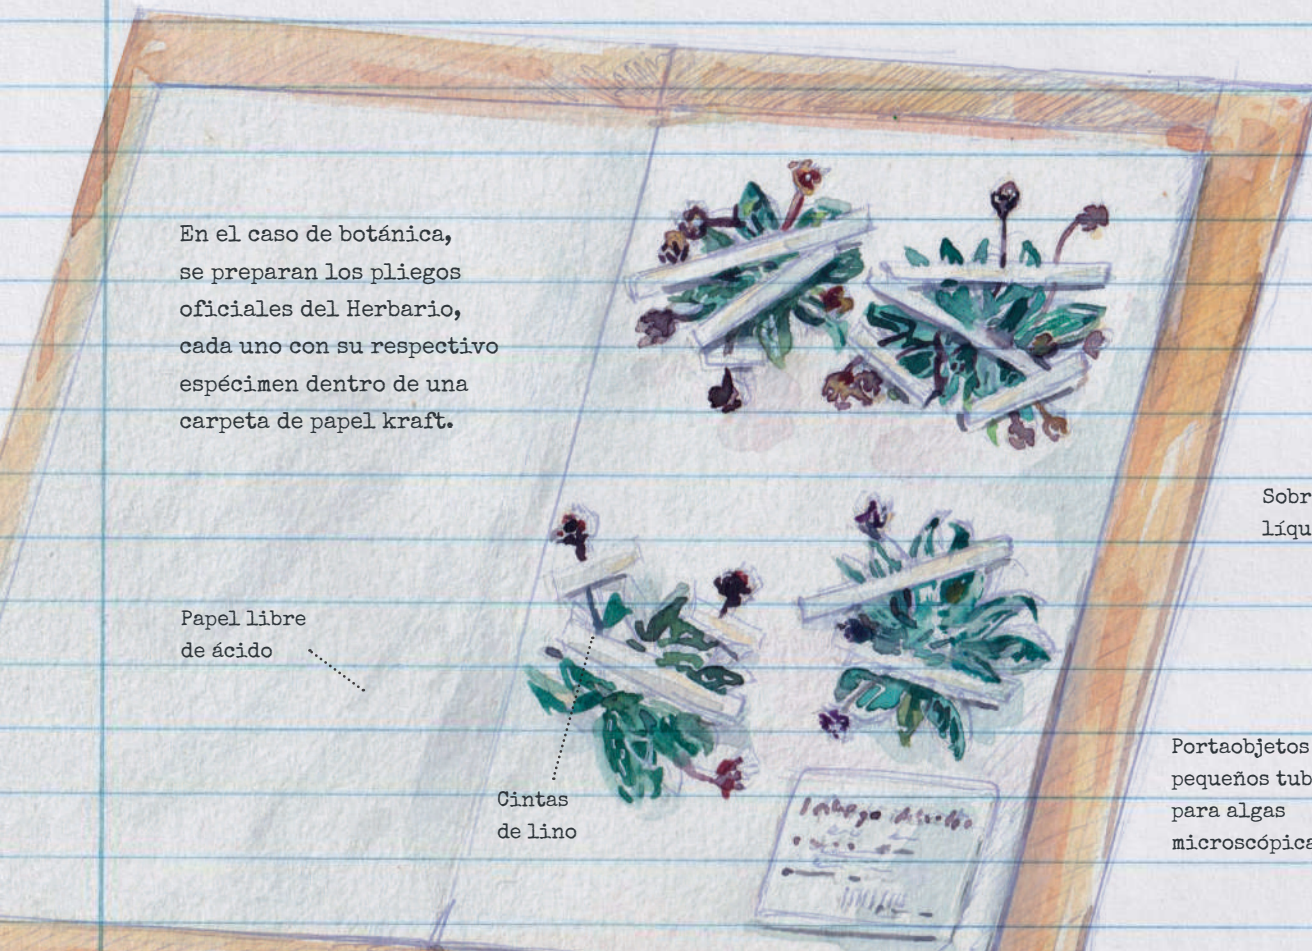 En el caso de botánica,
se preparan los pliegos
oficiales del Herbario,
cada uno con su respectivo
espécimen dentro de una
carpeta de papel kraft.
Papel libre
de ácido
Cintas
de lino
Sobr
líqu
Portaobjetos
pequeños tub
para algas
microscópica